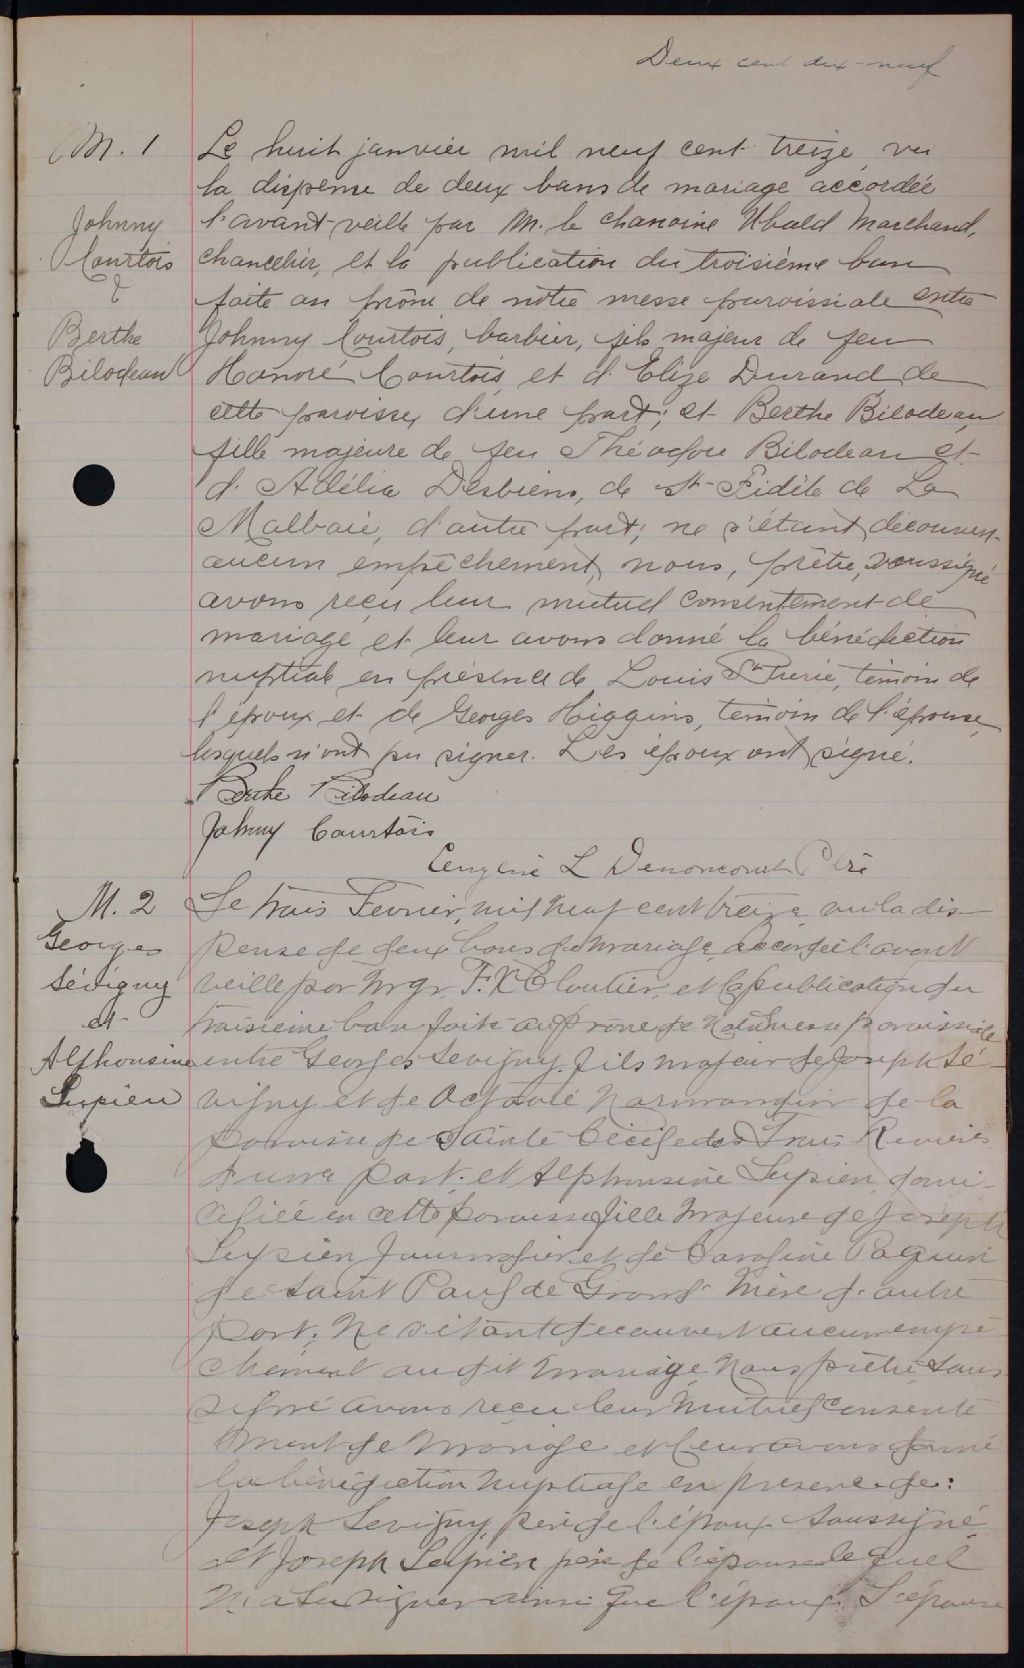 Deux cent dix-neuf
M. 1
Johnny
Courtois
&
Berthe
Bilodeau
Le huit janvier mil neuf cent treize, vu
la dispense de deux bans de mariage accordée
l'avant-veille par M. le chanoine Ubald Marchand,
chancelier, et la publication du troisième ban
faite au prône de notre messe paroissiale entre
Johnny Courtois, barbier, fils majeur de feu
Honoré Courtois et d'Elize Durand de
cette paroisse, d'une part; et Berthe Bilodeau,
fille majeure de feu Théodore Bilodeau et
d'Adélia Desbiens, de St-Fidèle de La
Malbaie, d'autre part; ne s'étant découvert
aucun empêchement, nous, prêtre, soussigné
avons reçu leur mutuel consentement de
mariage et leur avons donné la bénédiction
nuptiale en présence de Louis témoin de
l'époux et de Georges Higgins, témoin de l'épouse,
lesquels n'ont pu signer. Les époux ont signé.
Berthe Bilodeau
Johnny Courtois
Eugène L Denoncourt Ptre
M. 2
Georges
Sévigny
et
Alphonsine
Lupien
Le trois Fevrier, mil neuf cent treize vu la dis-
pense de deux bans de mariage accordée l'avant
veille par Mgr. F. X Cloutier, et la publication du
troisieme ban faite au prône de Notre messe paroissiale
entre Georges Sevigny, fils majeur de Joseph Sé-
vigny et de Octavie Normandin de la
paroisse de Sainte Cécile des Trois Rivières
d'une part, et Alphonsine Lupien, domi-
ciliée en cette paroisse fille majeure de Joseph
Lupien journalier et de Caroline Paquin
de Saint Paul de Grand' Mère d'autre
part; Ne s'étant decouvert aucun empê
chement au dit mariage, Nous prêtre, sous
signé avons reçu leur mutuel consente
ment de mariage et leur avons donné
la bénédiction nuptiale en presence de:
Joseph Sevigny, père de l'époux soussigné
et Joseph Lupien père de l'épouse lequel
n'a su signer ainsi que l'époux. L'épouse